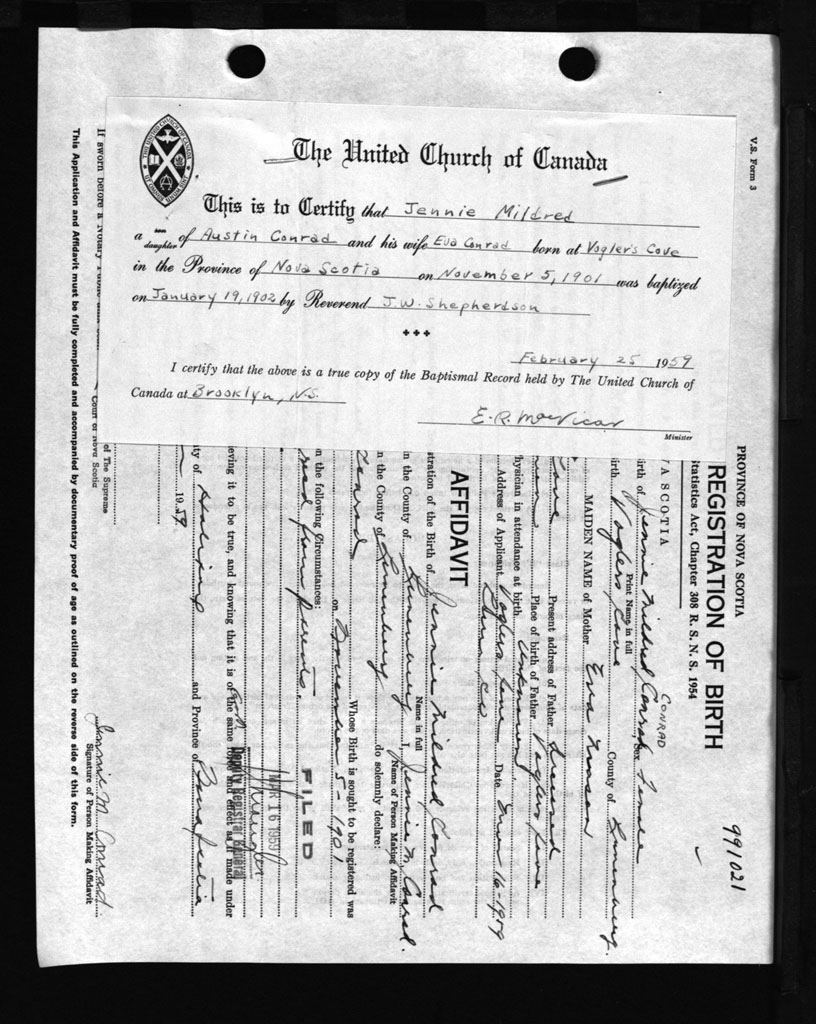 The United Church of Canada
This is to Certify that Jennie Mildred
a son daughter of Austin Conrad and his wife Eva Conrad born at Vogler's Cove
in the Province of Nova Scotia on November 5, 1901 was baptized
on January 19, 1902 by Reverend J.W. Shepherdson
February 25 1959
I certify that the above is a true copy of the Baptismal Record held by The United Church of
Canada at Brooklyn, N.S.
E.R. MacVicar
Minister
V.S. Form 3
991021
PROVINCE OF NOVA SCOTIA
REGISTRATION OF BIRTH
Statistics Act, Chapter 308 R. S. N. S. 1954
VA SCOTIA
CONRAD
irth of Jennie Mildred Conrad Sex Female
Print Name in full
irth Voglers Cove County of Lunenburg.
MAIDEN NAME of Mother Eva
Cove Present address of Father Deceased
Place of birth of Father Voglers Cove
hysician in attendance at birth Unknown
Address of Applicant Voglers Cove Date 16-1959
Lun. Co
AFFIDAVIT
stration of the Birth of Jennie Mildred Conrad
Name in full
n the County of Lunenburg I, Jennie M. Conrad.
Name of Person Making Affidavit
n the County of Lunenburg do solemnly declare:
Conrad Whose Birth is sought to be registered was
on November 5- 1901
n the following Circumstances:
from parents.
FILED
MAR 16 1959
Deputy Registrar General
eving it to be true, and knowing that it is of the same force and effect as if made under
ty of Halifax and Province of Nova Scotia
1959
of The Supreme
Court of Nova Scotia
Jennie M. Conrad
Signature of Person Making Affidavit
If sworn before a Notary Public
This Application and Affidavit must be fully completed and accompanied by documentary proof of age as outlined on the reverse side of this form.